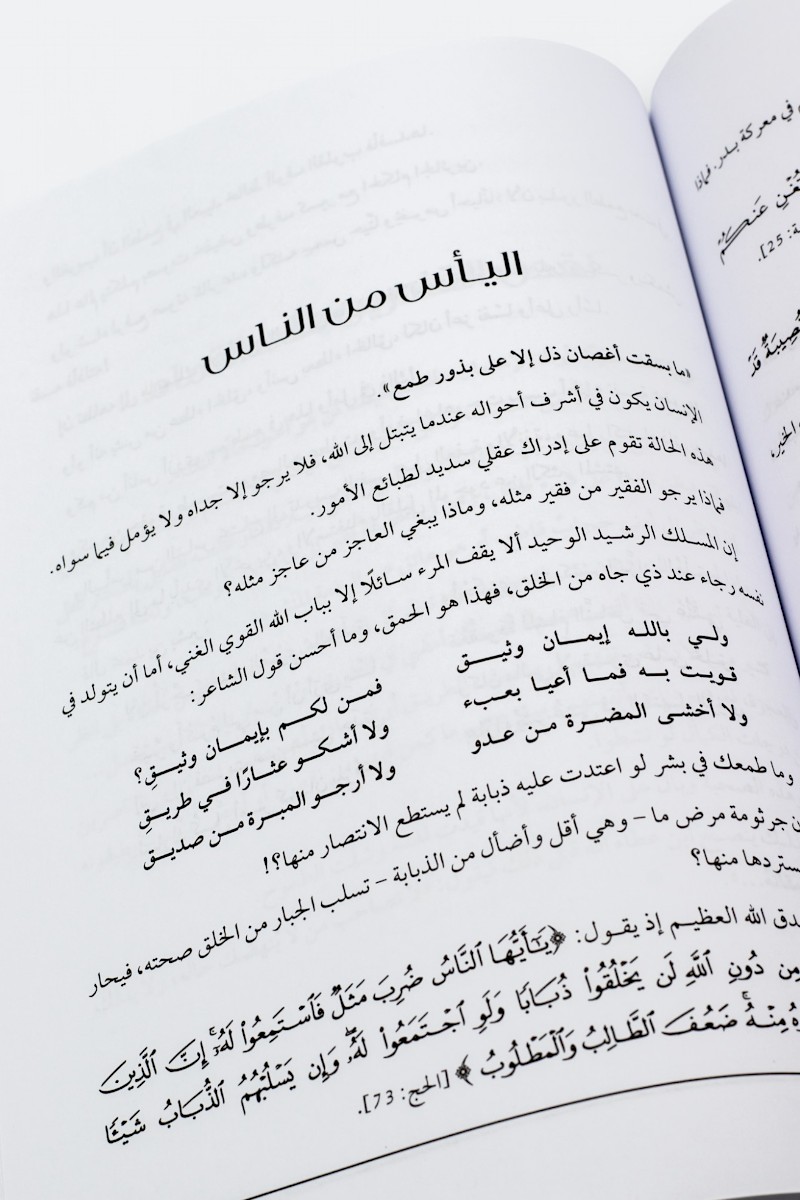 اليأس من الناس
«ما بسقت أغصان ذل إلا على بذور طمع».
الإنسان يكون في أشرف أحواله عندما يتبتل إلى الله، فلا يرجو إلا جداه ولا يؤمل فيما سواه.
هذه الحالة تقوم على إدراك عقلي سديد لطبائع الأمور.
فماذا يرجو الفقير من فقير مثله، وماذا يبغي العاجز من عاجز مثله؟
إن المسلك الرشيد الوحيد ألا يقف المرء سائلًا إلا بباب الله القوي الغني، أما أن يتولد في
نفسه رجاء عند ذي جاه من الخلق، فهذا هو الحمق، وما أحسن قول الشاعر:
ولي بالله إيمان وثيق فمن لكم بإيمان وثيقِ؟
قويت به فما أعيا بعبء ولا أشكو عثارًا في طريقِ
ولا أخشى المضرة من عدو ولا أرجو المبرة من صديق
وما طمعك في بشر لو اعتدت عليه ذبابة لم يستطع الانتصار منها؟!
جرثومة مرض ما – وهي أقل وأضأل من الذبابة – تسلب الجبار من الخلق صحته، فيحار
منها؟
الله العظيم إذ يقول: ﴿يَٰٓأَيُّهَا ٱلنَّاسُ ضُرِبَ مَثَلٌ فَٱسْتَمِعُوا۟ لَهُۥٓ ۚ إِنَّ ٱلَّذِينَ
مِن دُونِ ٱللَّهِ لَن يَخْلُقُوا۟ ذُبَابًا وَلَوِ ٱجْتَمَعُوا۟ لَهُۥ ۖ وَإِن يَسْلُبْهُمُ ٱلذُّبَابُ شَيْـًٔا
مِنْهُ ۚ ضَعُفَ ٱلطَّالِبُ وَٱلْمَطْلُوبُ﴾ [الحج: 73].
في معركة بدر. فماذا
عَنكُمْ
25].
قَدْ
الخير،